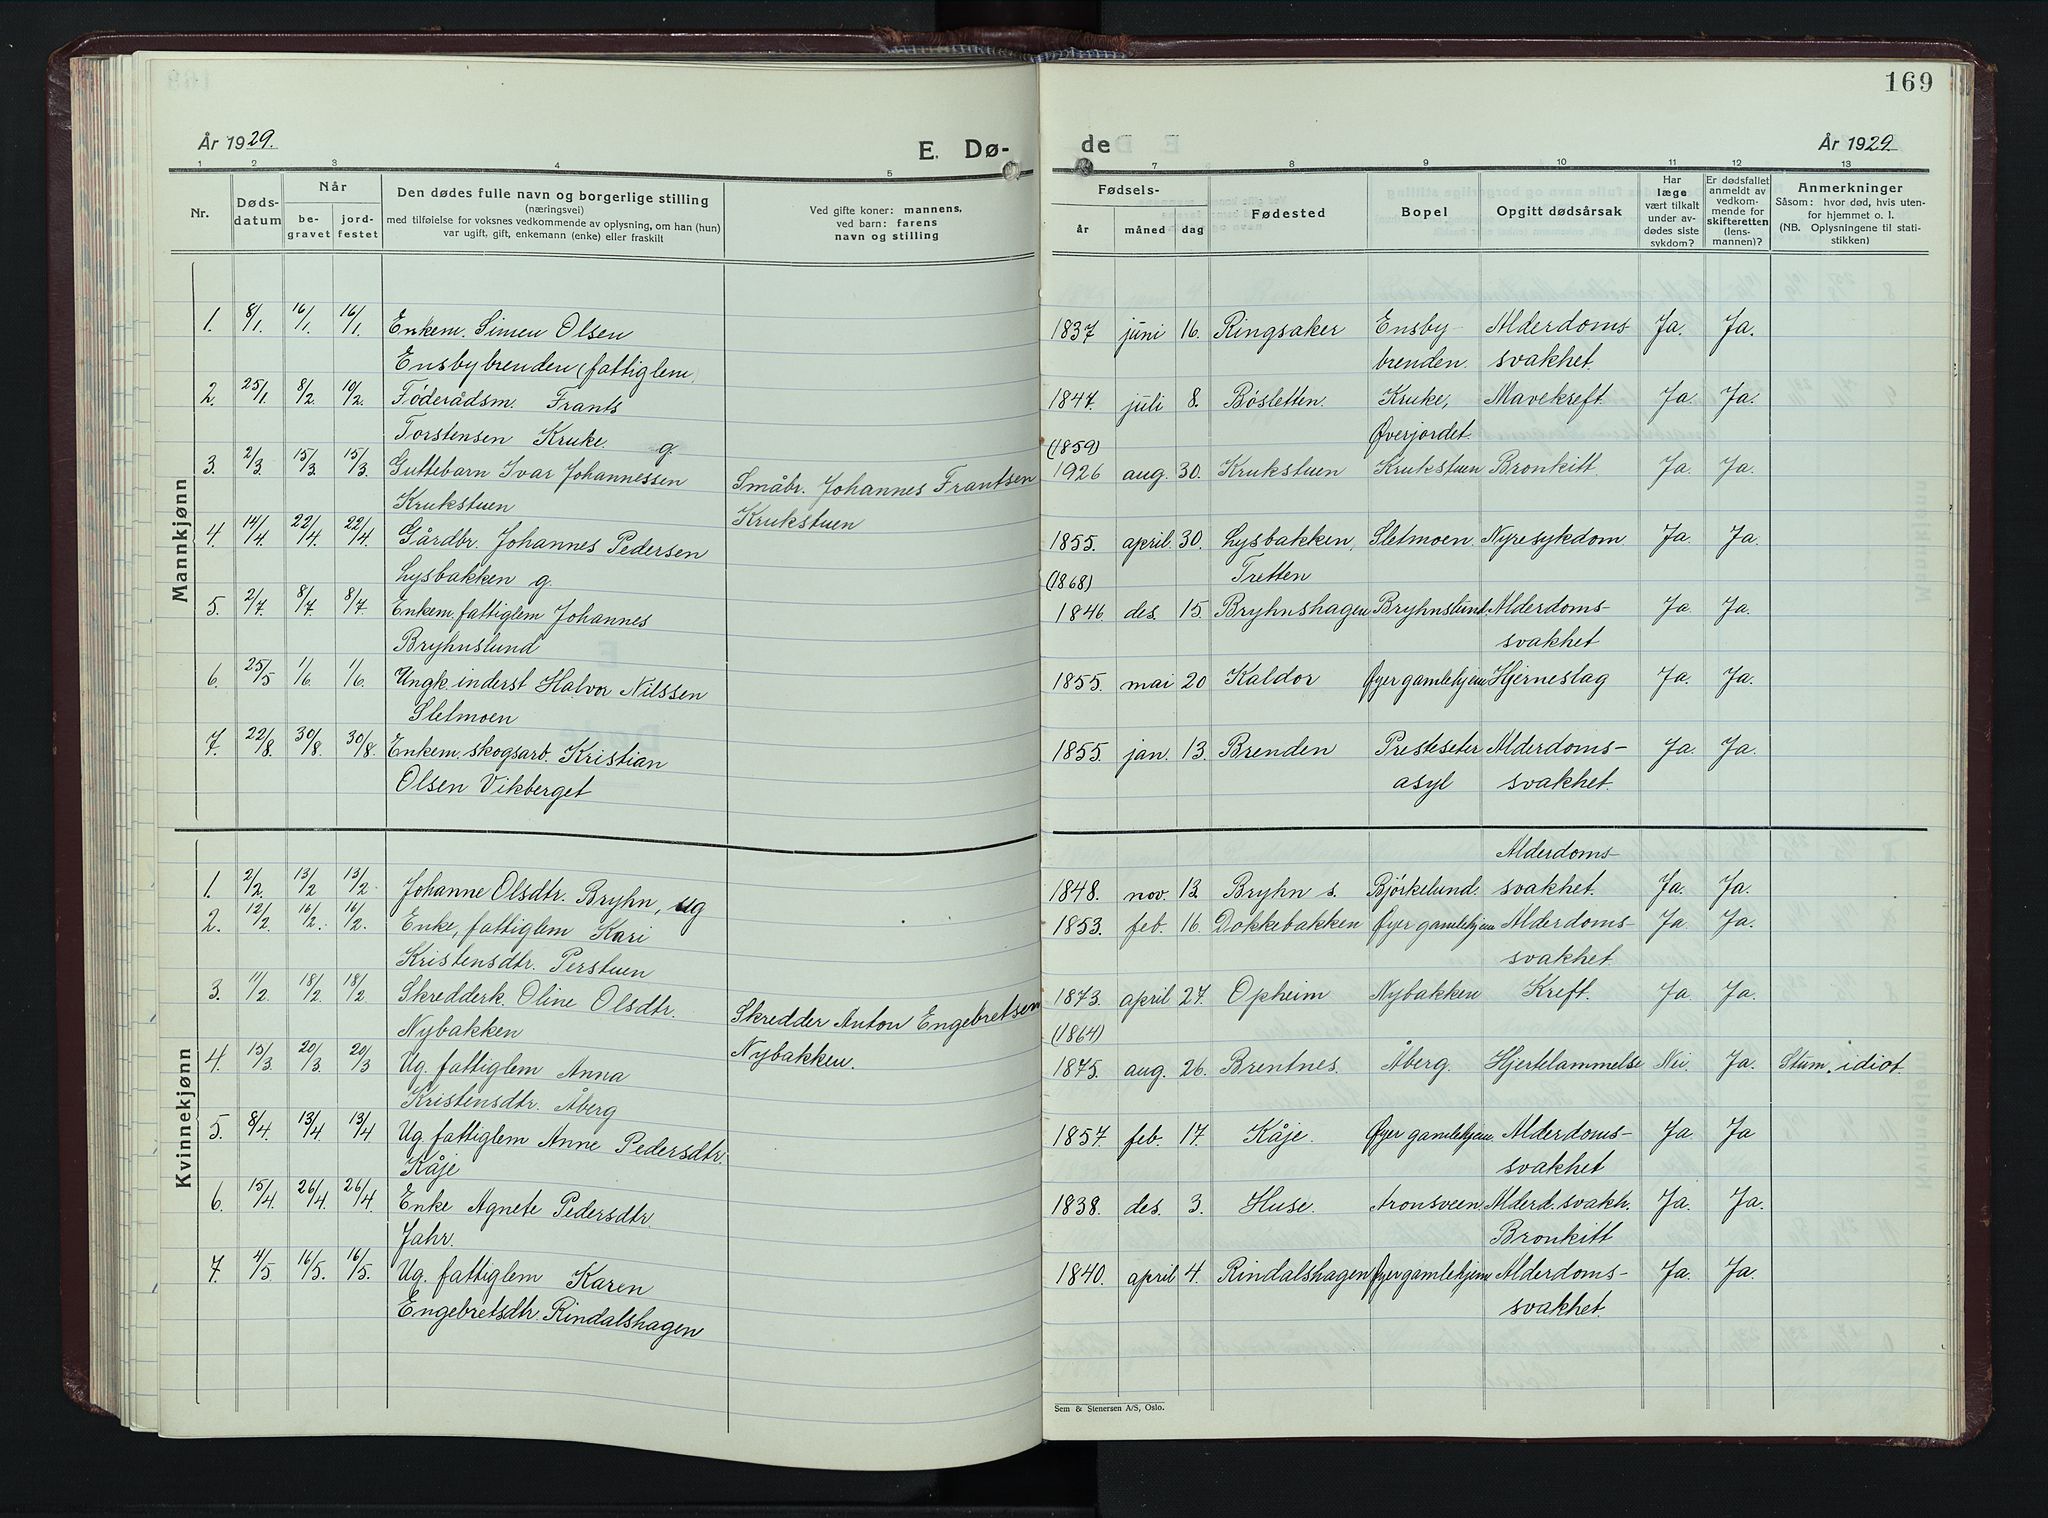 169
År 1929.
E. Dø-
de
År 1929
1 2 3 4 5 7 8 9 10 11 12 13
Nr.
Døds-
datum
Når
be-
gravet
jord-
festet
Den dødes fulle navn og borgerlige stilling
(næringsvei)
med tilføielse for voksnes vedkommende av oplysning, om han (hun)
var ugift, gift, enkemann (enke) eller fraskilt
Ved gifte koner: mannens,
ved barn: farens
navn og stilling
Fødsels-
år måned dag
Fødested
Bopel
Opgitt dødsårsak
Har
læge
vært tilkalt
under av-
dødes siste
sykdom?
Er dødsfallet
anmeldt av
vedkom-
mende for
skifteretten
(lens-
mannen)?
Anmerkninger
Såsom: hvor død, hvis uten-
for hjemmet o. l.
(NB. Oplysningene til stati-
stikken)
Mannkjønn
1. 8/1 16/1. 16/1. Enkem. Simen Olsen 1837 juni 16. Ringsaker Ensby- Alderdoms- Ja. Ja.
Ensbybrenden (fattiglem) brenden. svakhet.
2. 25/1. 8/2 10/2. Føderådsm. Frants 1847. juli 8. Bøsletten. Kruke, Mavekreft. Ja. Ja.
Torstensen Kruke g (1859) Øverjordet.
3. 2/3 15/3 15/3 Guttebarn Ivar Johannessen Småbr. Johannes Frantsen 1926 aug. 30. Krukstuen Krukstuen Bronkitt Ja. Ja.
Krukstuen Krukstuen
4. 14/4. 22/4. 22/4. Gårdbr. Johannes Pedersen 1855. april 30. Lysbakken, Sletmoen. Nyresykdom Ja. Ja.
Lysbakken g. (1868) Tretten
5. 2/7 8/7. 8/7. Enkem, fattiglem Johannes 1846. des. 15. Bryhnshagen Bryhnslund. Alderdoms- Ja. Ja.
Bryhnslund svakhet
6. 25/5 1/6. 1/6. Ungk. inderst Halvor Nilssen 1855. mai 20 Kaldor Øyer gamlehjem Hjerneslag Ja. Ja.
Sletmoen
7. 22/8. 30/8. 30/8. Enkem. skogsarb. Kristian 1855. jan. 13. Brenden Presteseter Alderdoms- Ja. Ja.
Olsen Vikberget asyl svakhet.
Kvinnekjønn
Alderdoms-
1. 2/2 13/2 13/2. Johanne Olsdtr. Bryhn, ug 1848. nov. 13. Bryhn s. Bjørkelund. svakhet. Ja. Ja.
2. 12/2 16/2. 16/2. Enke, fattiglem Kari 1853. feb. 16. Dokkebakken Øyer gamlehjem Alderdoms- Ja. Ja.
Kristensdtr. Perstuen svakhet.
3. 11/2 18/2 18/2 Skredderk. Oline Olsdtr. Skredder Anton Engebretsen 1873. april 27. Opheim Nybakken Kreft. Ja Ja.
Nybakken Nybakken. (1864)
4. 15/3. 20/3 20/3 Ug. fattiglem Anna 1875. aug. 26. Brentnes. Åberg. Hjertelammelse Nei Ja. Stum. idiot.
Kristensdtr. Åberg
5. 8/4. 13/4 13/4 Ug. fattiglem Anne Pedersdtr. 1857. feb. 17. Kåje. Øyer gamlehjem Alderdoms- Ja Ja
Kåje svakhet
6. 15/4 26/4 26/4 Enke Agnete Pedersdtr. 1838. des. 3. Huse. Aronsveen. Alderd. svakh. Ja. Ja.
Jahr. Bronkitt
7. 4/5 16/5. 16/5. Ug. fattiglem Karen 1840. april 4. Rindalshagen Øyer gamlehjem Alderdoms- Ja. Ja.
Engebretsdtr. Rindalshagen svakhet.
Sem & Stenersen A/S, Oslo.